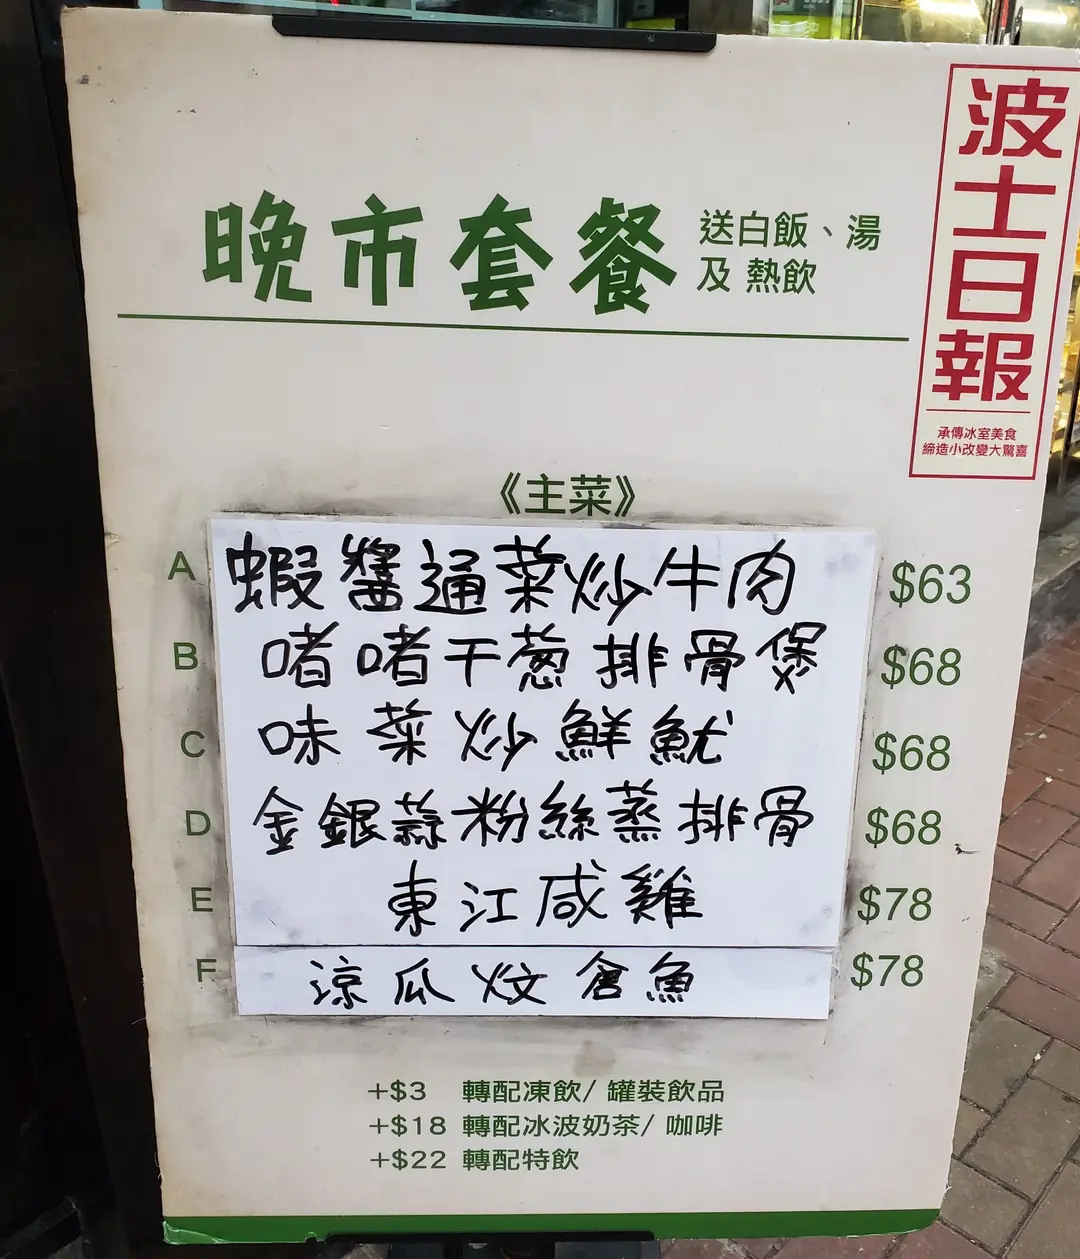 晚市套餐
送白飯、湯
及 熱飲
波士日報
承傳冰室美食
締造小改變大驚喜
《主菜》
A 蝦醬通菜炒牛肉 $63
B 啫啫干葱排骨煲 $68
C 味菜炒鮮魷 $68
D 金銀蒜粉絲蒸排骨 $68
E 東江咸雞 $78
F 涼瓜炆倉魚 $78
+$3 轉配凍飲/ 罐裝飲品
+$18 轉配冰波奶茶/ 咖啡
+$22 轉配特飲